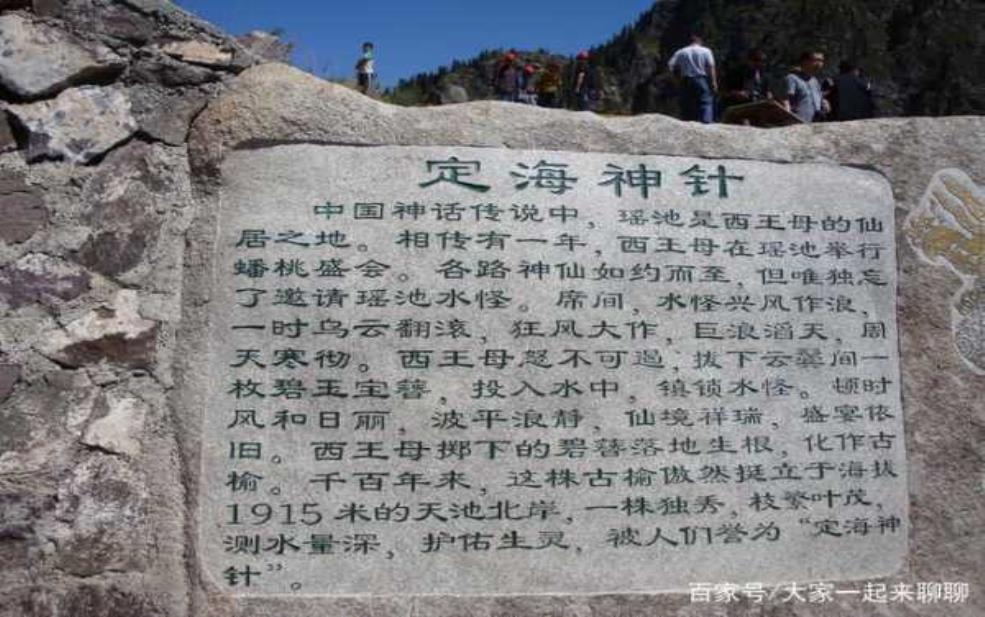 定海神针
中国神话传说中，瑶池是西王母的仙
居之地。相传有一年，西王母在瑶池举行
蟠桃盛会。各路神仙如约而至，但唯独忘
了邀请瑶池水怪。席间，水怪兴风作浪，
一时乌云翻滚，狂风大作，巨浪滔天，周
天寒彻。西王母忍不可遏，拔下云鬓间一
枚碧玉宝簪，投入水中，镇锁水怪。顿时
风和日丽，波平浪静，仙境祥瑞，盛宴依
旧。西王母掷下的碧簪落地生根，化作古
榆。千百年来，这株古榆傲然挺立于海拔
1915米的天池北岸，一株独秀，枝繁叶茂，
测水量深，护佑生灵，被人们誉为“定海神
针”。
百家号/大家一起来聊聊